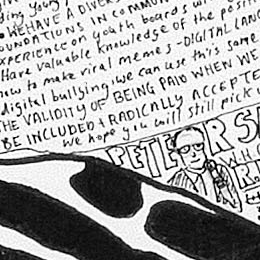 ding young
• WE HAVE A DIVERS
OUNDATIONS IN COMMUN
EXPERIENCE on youth boards wi
Have valuable knowledge of the posit
how to make viral memes - DIGITAL LANG
digital bullying, we can use this same
THE VALIDITY OF BEING PAID WHEN WE
BE INCLUDED + RADICALLY ACCEPTE
We hope you will still pick u
PETE R S
WH